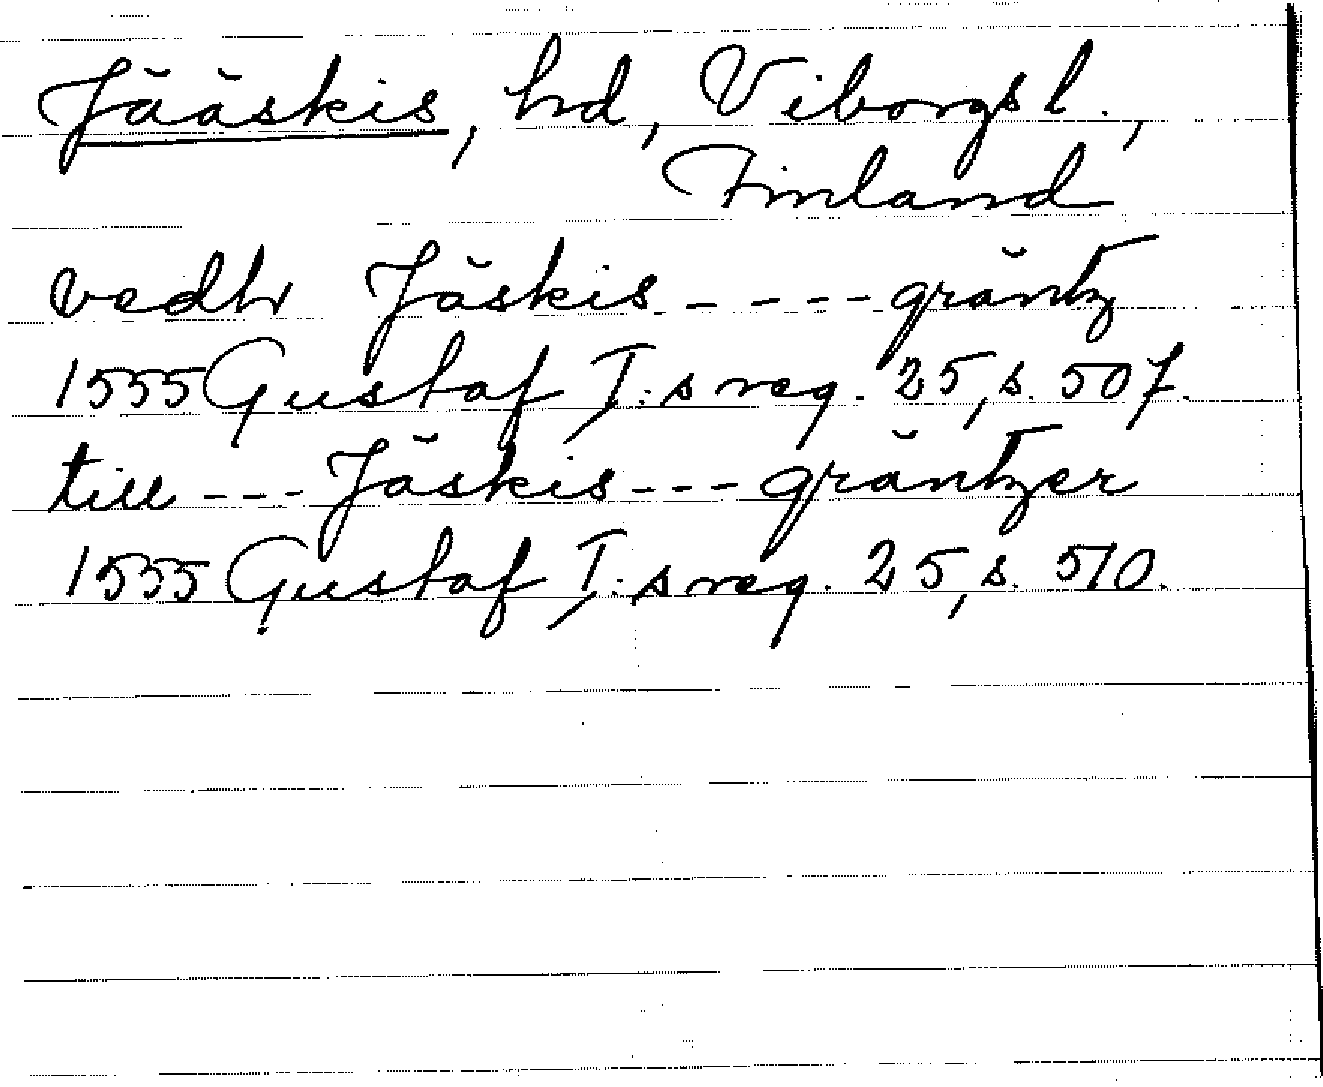 Jääskis, hd, Viborgs l.,
Finland
vedh Jäskis - - - - gräntz
1555 Gustaf I:s reg. 25, s. 507.
till - - - Jäskis - - - gräntzer
1555 Gustaf I:s reg. 25, s. 510.